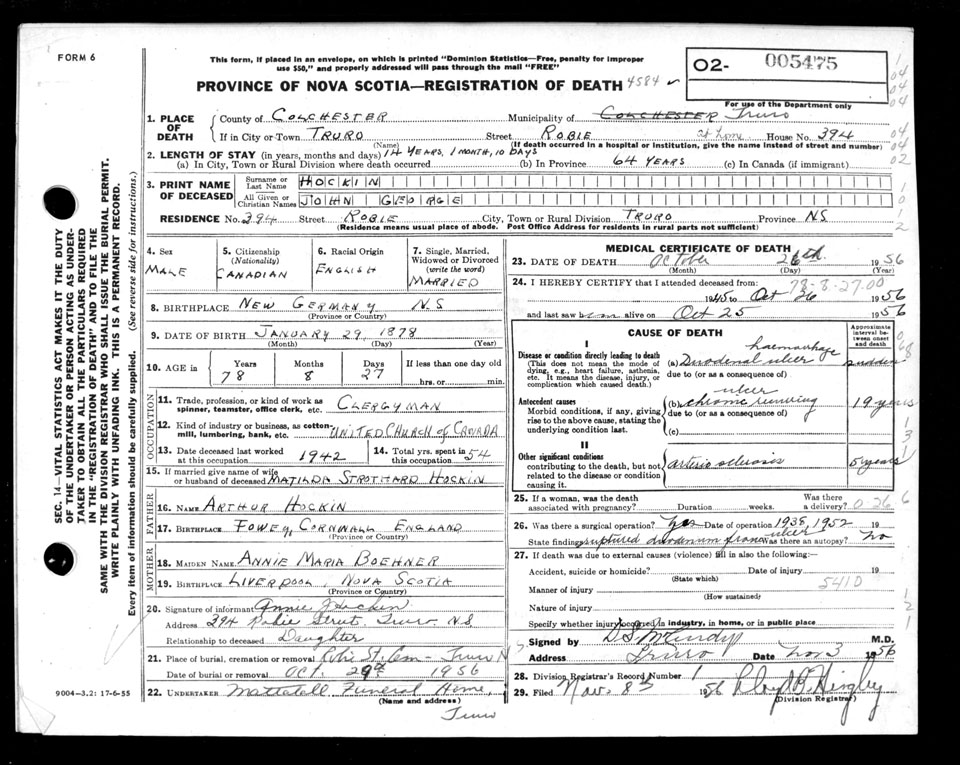 FORM 6
This form, if placed in an envelope, on which is printed "Dominion Statistics—Free, penalty for improper
use $50," and properly addressed will pass through the mail "FREE"
O2- 005475
For use of the Department only
PROVINCE OF NOVA SCOTIA—REGISTRATION OF DEATH 4584
1. PLACE OF DEATH
County of COLCHESTER Municipality of COLCHESTER Truro
If in City or Town TRURO Street ROBIE at home House No. 394
(Name) (If death occurred in a hospital or institution, give the name instead of street and number)
2. LENGTH OF STAY (in years, months and days) 14 YEARS, 1 MONTH, 10 DAYS
(a) In City, Town or Rural Division where death occurred (b) In Province 64 YEARS (c) In Canada (if immigrant)
3. PRINT NAME OF DECEASED
Surname or Last Name HOCKIN
All Given or Christian Names JOHN GEORGE
RESIDENCE No. 394 Street ROBIE City, Town or Rural Division TRURO Province N.S.
(Residence means usual place of abode. Post Office Address for residents in rural parts not sufficient)
4. Sex MALE
5. Citizenship (Nationality) CANADIAN
6. Racial Origin ENGLISH
7. Single, Married, Widowed or Divorced (write the word) MARRIED
8. BIRTHPLACE NEW GERMANY N.S.
(Province or Country)
9. DATE OF BIRTH JANUARY 29, 1878
(Month) (Day) (Year)
10. AGE in Years 78 Months 8 Days 27 If less than one day old
hrs. or min.
OCCUPATION
11. Trade, profession, or kind of work as
spinner, teamster, office clerk, etc. CLERGYMAN
12. Kind of industry or business, as cotton-
mill, lumbering, bank, etc. UNITED CHURCH of CANADA
13. Date deceased last worked at this occupation 1942
14. Total yrs. spent in this occupation 54
15. If married give name of wife
or husband of deceased MATILDA STROTHARD HOCKIN
FATHER
16. Name ARTHUR HOCKIN
17. BIRTHPLACE FOWEY, CORNWALL ENGLAND
(Province or Country)
MOTHER
18. MAIDEN NAME ANNIE MARIA BOEHNER
19. BIRTHPLACE LIVERPOOL, NOVA SCOTIA
(Province or Country)
20. Signature of informant Annie J Hockin
Address 394 Robie Street, Truro, N.S
Relationship to deceased Daughter
21. Place of burial, cremation or removal Robie St. Cem - Truro N S
Date of burial or removal Oct. 29th 1956
22. UNDERTAKER Mattatall Funeral Home,
(Name and address)
Truro
MEDICAL CERTIFICATE OF DEATH
23. DATE OF DEATH October 26th 1956
(Month) (Day) (Year)
78-8-27.00
24. I HEREBY CERTIFY that I attended deceased from:
1945 to Oct 26 1956
and last saw him alive on Oct 25 1956
CAUSE OF DEATH
Approximate interval between onset and death
I
Disease or condition directly leading to death
(This does not mean the mode of
dying, e.g., heart failure, asthenia,
etc. It means the disease, injury, or
complication which caused death.)
haemorrhage
(a) Duodenal ulcer sudden
due to (or as a consequence of)
Antecedent causes
Morbid conditions, if any, giving
rise to the above cause, stating the
underlying condition last.
ulcer
(b) chronic 19 years
due to (or as a consequence of)
(c)
II
Other significant conditions
contributing to the death, but not
related to the disease or condition
causing it.
arterio sclerosis 5 years
25. If a woman, was the death
associated with pregnancy? Duration weeks. Was there a delivery? 026
26. Was there a surgical operation? Yes Date of operation 1938, 1952 19
State findings ruptured duodenum from ulcer Was there an autopsy? No
27. If death was due to external causes (violence) fill in also the following:—
Accident, suicide or homicide? Date of injury 19
(State which)
Manner of injury 5410
(How sustained)
Nature of injury
Specify whether injury occurred in industry, in home, or in public place
Signed by D S McCurdy M.D.
Address Truro Date Nov 3 1956
28. Division Registrar's Record Number 1
29. Filed Nov. 8th 1956
(Division Registrar)
SEC. 14—VITAL STATISTICS ACT MAKES IT THE DUTY
OF THE UNDERTAKER OR PERSON ACTING AS UNDER-
TAKER TO OBTAIN ALL THE PARTICULARS REQUIRED
IN THE "REGISTRATION OF DEATH" AND TO FILE THE
SAME WITH THE DIVISION REGISTRAR WHO SHALL ISSUE THE BURIAL PERMIT.
WRITE PLAINLY WITH UNFADING INK. THIS IS A PERMANENT RECORD.
Every item of information should be carefully supplied. (See reverse side for instructions.)
9004-3.2: 17-6-55